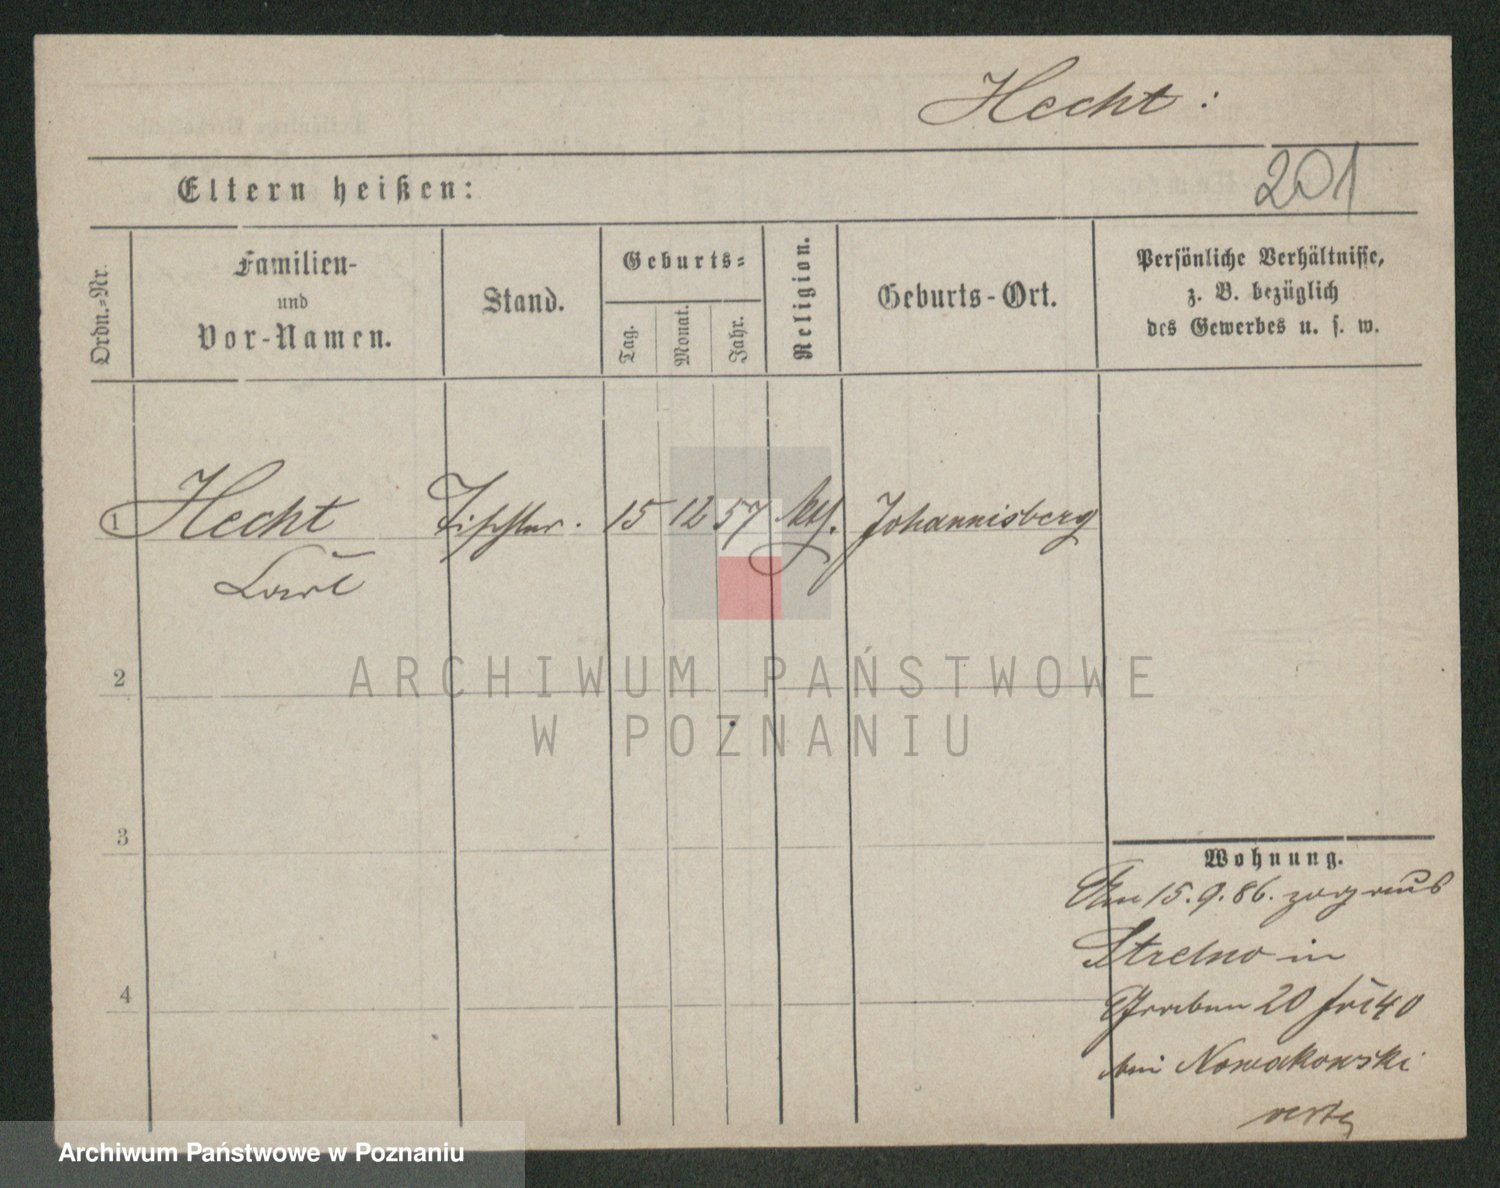 Hecht:
201
Eltern heißen:
Ordn.-Nr.
Familien-
und
Vor-Namen.
Stand.
Geburts-
Tag.
Monat.
Jahr.
Religion.
Geburts-Ort.
Persönliche Verhältnisse,
z. B. bezüglich
des Gewerbes u. s. w.
1 Hecht Tischler. 15 12 57 kth. Johannisberg
Carl
2
3
4
Wohnung.
Am 15.9.86. zog aus
Strelno in
Graben 20
bei Nowakowski
ARCHIWUM PAŃSTWOWE
W POZNANIU
Archiwum Państwowe w Poznaniu